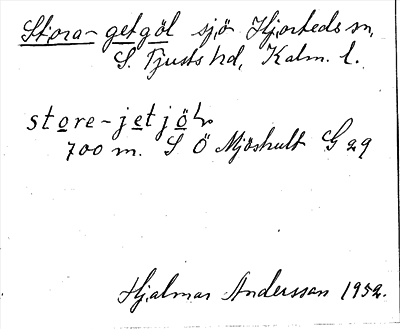 Stora-getgöl sjö Hjorteds sn,
S. Tjusts hd, Kalm. l.
store-jetjöl
700 m. S Ö Mjöshult G 29
Hjalmar Andersson 1952.